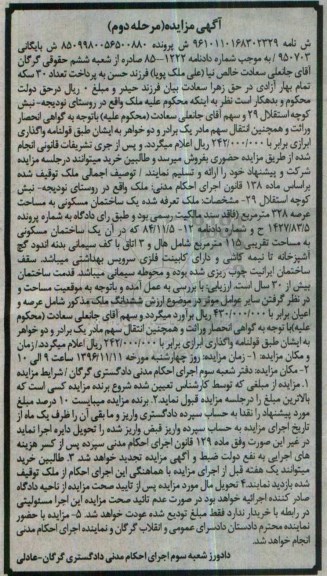 آگهی مزایده(مرحله دوم)
ش نامه ۹۶۱۰۱۱۰۱۶۸۳۰۲۳۲۹ ش پرونده ۸۵۰۹۹۸۰۰۵۶۵۰۰۸۸۰ ش بایگانی
۹۵۰۷۰۳ / به موجب شماره دادنامه ۱۲۲۲-۸۵ صادره از شعبه ششم حقوقی گرگان
آقای جانعلی سعادت خالص نیا (علی ملک پویا) فرزند حسن به پرداخت تعداد ۳۰ سکه
تمام بهار آزادی در حق زهرا سعادت بیان فرزند حیدر و مبلغ ۰ ریال درحق دولت
محکوم و بدهکار است نظر به اینکه محکوم علیه ملک واقع در روستای نودیجه- نبش
کوچه استقلال ۲۹ و سهم آقای جانعلی سعادت (محکوم علیه) باتوجه به گواهی انحصار
وراثت و همچنین انتقال سهم مادر یک برادر و دو خواهر به ایشان طبق قولنامه واگذاری
ابرازی برابر با ۲۴۲/۰۰۰/۰۰۰ ریال اعلام میگردد. و پس از جری تشریفات قانونی انجام
شده از طریق مزایده حضوری بفروش میرسد و طالبین خرید میتوانند درجلسه مزایده
شرکت و پیشنهاد خود را ارائه و تسلیم نمایند. / توصیف اجمالی ملک توقیف شده
براساس ماده ۱۳۸ قانون اجرای احکام مدنی: ملک واقع در روستای نودیجه- نبش
کوچه استقلال ۲۹- مشخصات: ملک تعرفه شده یک ساختمان مسکونی به مساحت
عرصه ۳۲۸ مترمربع (فاقد سند مالکیت رسمی بود و طبق رای دادگاه به شماره پرونده
۱۴۳۷/۸۳/۵ ح و شماره دادنامه ۱۲-۸۴/۱۱/۵ که در آن یک ساختمان مسکونی
به مساحت تقریبی ۱۱۵ مترمربع شامل هال و ۳ اتاق با کف سیمانی بدنه اندود گچ
آشپزخانه تا نیمه کاشی و دارای کابینت فلزی، سرویس بهداشتی میباشد. سقف
ساختمان ایرانیت چوب ریزی شده بوده و محوطه سیمانی میباشد. قدمت ساختمان
بیش از ۳۰ سال است. ارزیابی: با بررسی به عمل آمده و باتوجه به موقعیت مساحت و
در نظر گرفتن سایر عوامل موثر در موضوع ارزش ششدانگ ملک مذکور شامل عرصه و
اعیان برابر با ۴۳۰/۰۰۰/۰۰۰ ریال برآورد میگردد و سهم آقای جانعلی سعادت (محکوم
علیه)با توجه به گواهی انحصار وراثت و همچنین انتقال سهم مادر یک برادر و دو خواهر
به ایشان طبق قولنامه واگذاری ابرازی برابر با ۲۴۲/۰۰۰/۰۰۰ ریال اعلام میگردد/زمان
و مکان مزایده: ۱- زمان مزایده: روز چهارشنبه مورخه ۱۳۹۶/۱۱/۱۱ ساعت ۹ الی ۱۰
۲- مکان مزایده: دفتر شعبه سوم اجرای احکام مدنی دادگستری گرگان / شرایط مزایده
۱. مزایده از مبلغی که توسط کارشناس تعیین شده شروع برنده مزایده کسی است که
بالاترین مبلغ را درجلسه مزایده قبول نماید.۲. برنده مزایده میبایست ۱۰ درصد مبلغ
مورد پیشنهاد را نقدا به حساب سپرده دادگستری واریز و ما بقی آن را ظرف یک ماه از
تاریخ اجرای مزایده به حساب سپرده واریز قبض واریز شده را تحویل دایره اجرا نماید
در غیر این صورت وفق ماده ۱۲۹ قانون اجرای احکام مدنی سپرده پس از کسر هزینه
های اجرایی به نفع دولت ضبط و آگهی مزایده تجدید خواهد شد. ۳. طالبین خرید
میتوانند یک هفته قبل از اجرای مزایده با هماهنگی این اجرای احکام از ملک توقیف
شده بازدید نمایند.۴ تحویل مال مورد مزایده پس از تایید صحت مزایده از ناحیه دادگاه
صادر کننده اجرائیه خواهد بود در صورت عدم تائید صحت مزایده این اجرا مسئولیتی
در رابطه با خریدار ندارد فقط مبلغ تودیع شده عودت خواهد شد. ۵- مزایده با حضور
نماینده محترم دادستان دادسرای عمومی و انقلاب گرگان و نماینده اجرای احکام مدنی
انجام خواهد شد.
دادورز شعبه سوم اجرای احکام مدنی دادگستری گرگان-عادلی